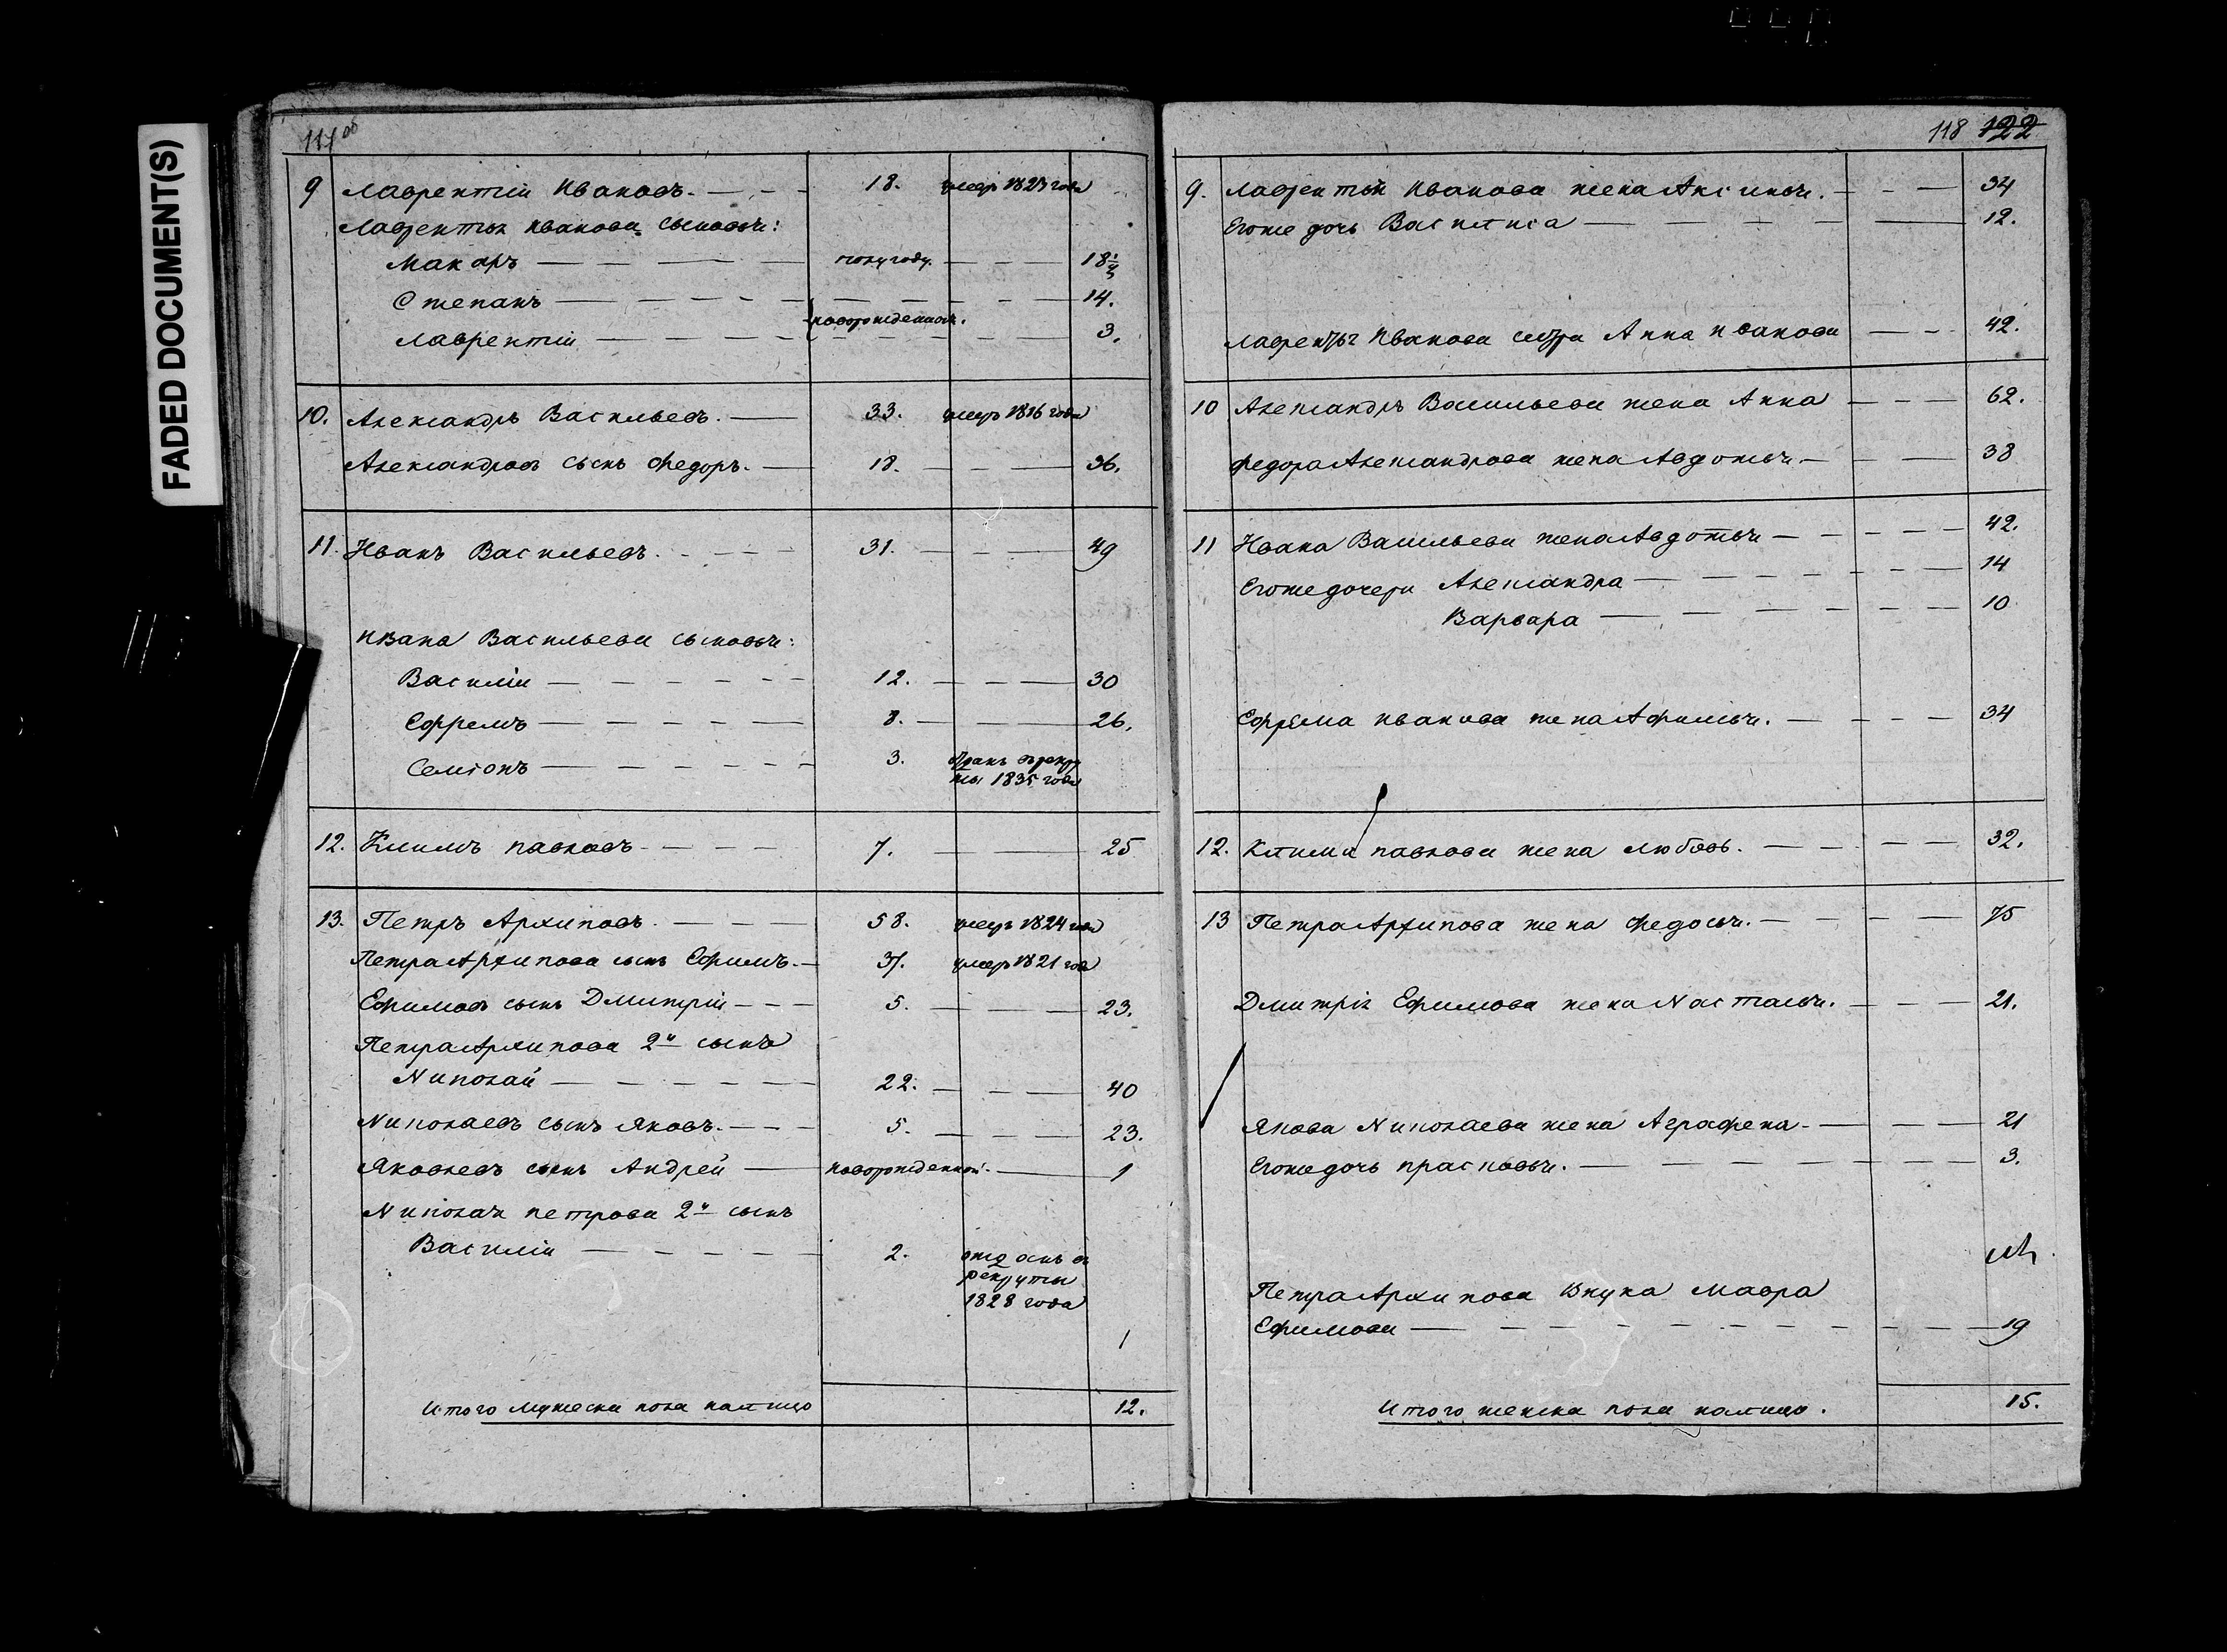 FADED DOCUMENT(S)
117 об
9 Лаврентiй Ивановъ. 18. умеръ 1823 года
Лаврентья Иванова сыновья:
Макаръ полугоду. 18½
Степанъ 14.
новорожденной.
Лаврентiй 3.
10. Александръ Васильевъ. 33. умеръ 1816 года
Александровъ сынъ Федоръ. 18. 36.
11. Иванъ Васильевъ. 31. 49
Ивана Васильева сыновья:
Василiй 12. 30
Ефремъ 8. 26.
Семiонъ 3. отданъ врекру
ты 1835 года
12. Климъ Павловъ 7. 25
13. Петръ Архиповъ. 58. умеръ 1824 года
Петра Архипова сынъ Ефимъ. 37. умеръ 1821 года
Ефимовъ сынъ Дмитрiй 5. 23.
Петра Архипова 2й сынъ
Николай 22. 40
Николаевъ сынъ Яковъ. 5. 23.
Яковлевъ сынъ Андрей новорожденной. 1
Николая Петрова 2й сынъ
Василiй 2. отданъ в
рекруты
1828 года
1
Итого мужеска пола налицо 12.
118 122
9. Лаврентья Иванова жена Аксинья. 34
Егоже дочь Василиса 12.
Лаврентья Иванова сестра Анна Иванова 42.
10 Александра Васильева жена Анна 62.
Федора Александрова жена Авдотья. 38
11 Ивана Васильева жена Авдотья 42.
Егоже дочери Александра 14
Варвара 10
Ефрема Иванова жена Афимья. 34
12. Клима Павлова жена Любовь. 32.
13 Петра Архипова жена Федосья. 75
Дмитрiя Ефимова жена Настасья. 21.
Якова Николаева жена Аграфена. 21
Егоже дочь Прасковья. 3.
Петра Архипова внука Мавра
Ефимова 19
Итого женска пола налицо. 15.